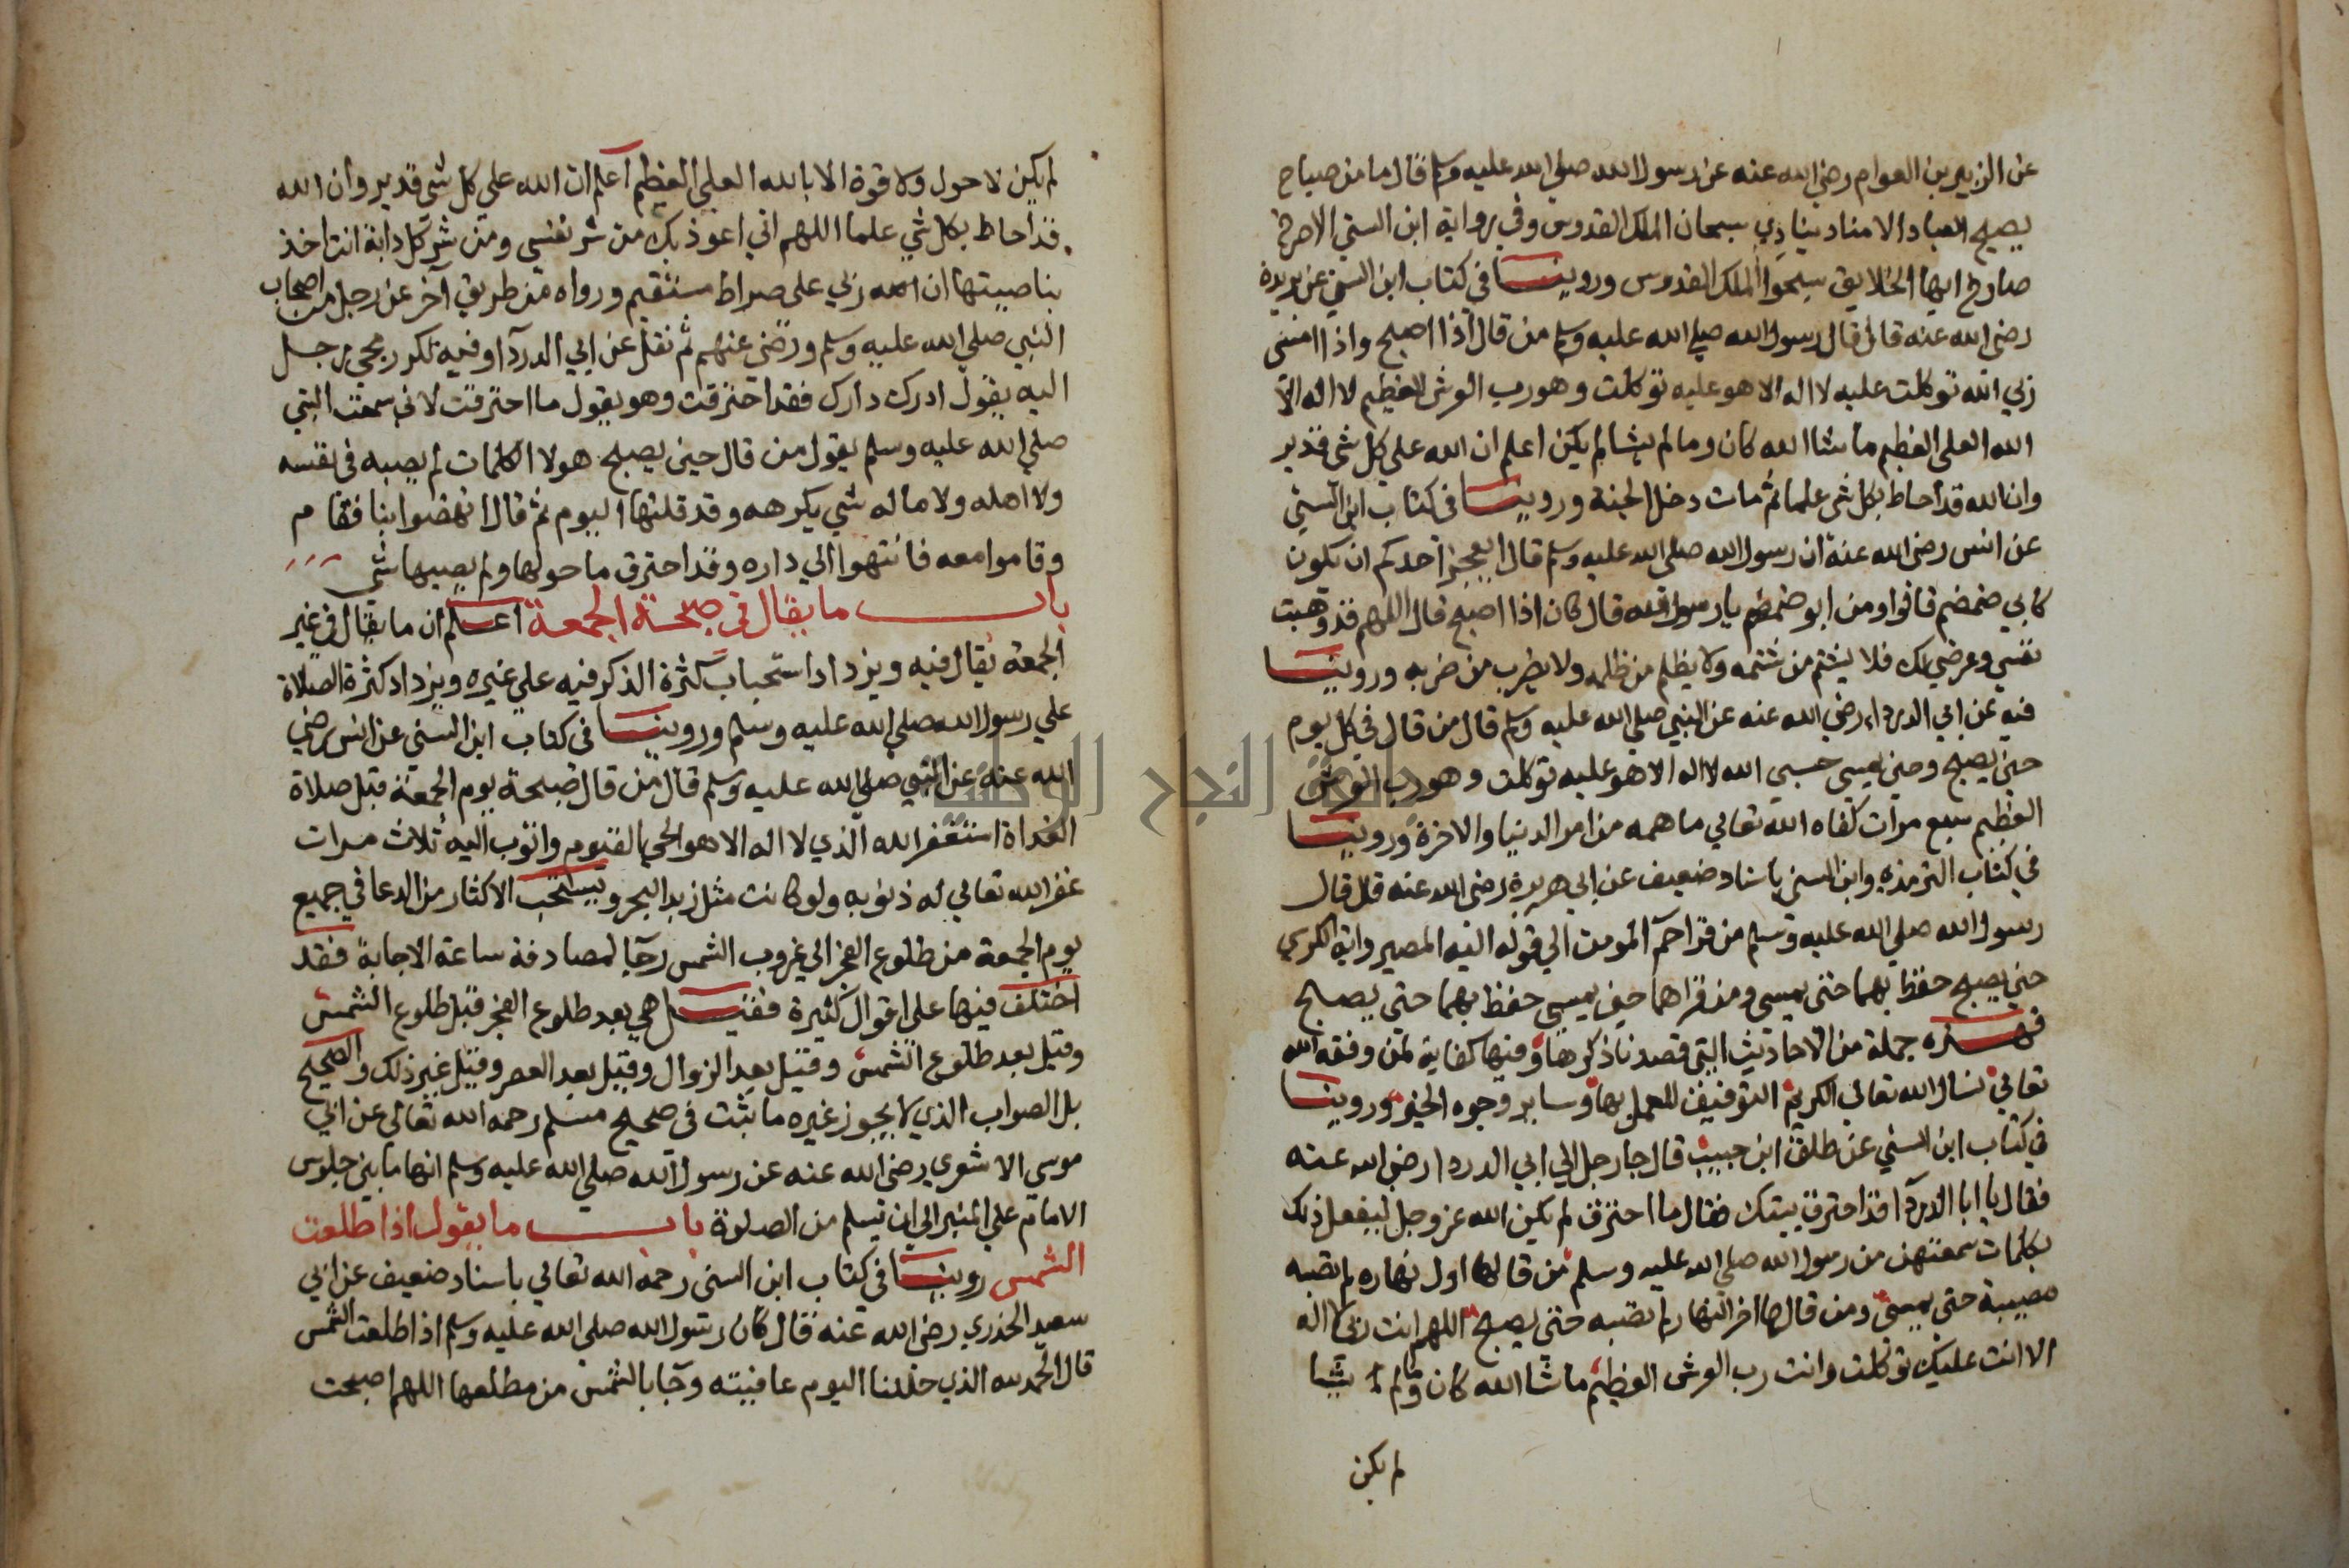 عن الزبير بن العوام رضي الله عنه عن رسول الله صلي الله عليه وسلم قال ما من صباح
يصبح العباد الا مناد ينادي سبحان الملك القدوس وفي رواية ابن السني الا صرخ
صارخ ايها الخلايق سبحوا الملك القدوس وروينا في كتاب ابن السني عن بريدة
رضي الله عنه قال قال رسول الله صلي الله عليه وسلم من قال اذا اصبح واذا امسى
ربي الله توكلت عليه لا اله الا هو عليه توكلت وهو رب العرش العظيم لا اله الا
الله العلي العظيم ما شا الله كان وما لم يشا لم يكن اعلم ان الله علي كل شي قدير
وان الله قد احاط بكل شي علما ثم مات دخل الجنة وروينا في كتاب ابن السني
عن انس رضي الله عنه ان رسول الله صلي الله عليه وسلم قال ايعجز احدكم ان يكون
كابي ضمضم قالوا ومن ابو ضمضم يا رسول الله قال كان اذا اصبح قال اللهم قد وهبت
نفسي وعرضي لك فلا يشتم من شتمه ولا يظلم من ظلمه ولا يضرب من ضربه وروينا
فيه عن ابي الدرداء رضي الله عنه عن النبي صلي الله عليه وسلم قال من قال في كل يوم
حين يصبح وحين يمسي حسبي الله لا اله الا هو عليه توكلت وهو رب العرش
العظيم سبع مرات كفاه الله تعالي ما همه من امر الدنيا والاخرة وروينا
في كتاب الترمذي وابن السني باسناد ضعيف عن ابي هريرة رضي الله عنه قال قال
رسول الله صلي الله عليه وسلم من قرا حم المومن الي قوله اليه المصير واية الكرسي
حين يصبح حفظ بهما حتى يمسي ومن قراهما حين يمسي حفظ بهما حتى يصبح
فهذه جملة من الاحاديث التي قصدنا ذكرها وفيها كفاية لمن وفقه الله
تعالي نسال الله تعالي الكريم التوفيق للعمل بها وساير وجوه الخير وروينا
في كتاب ابن السني عن طلق ابن حبيب قال جا رجل الي ابي الدردا رضي الله عنه
فقال يا ابا الدردا قد احترق بيتك فقال ما احترق لم يكن الله عز وجل ليفعل ذلك
بكلمات سمعتهن من رسول الله صلي الله عليه وسلم من قالها اول نهاره لم تصبه
مصيبة حتى يمسي ومن قالها اخر النهار لم تصبه حتى يصبح اللهم انت ربي لا اله
الا انت عليك توكلت وانت رب العرش العظيم ما شا الله كان وما لم يشا
لم يكن
لم يكن لا حول ولا قوة الا بالله العلي العظيم اعلم ان الله علي كل شي قدير وان الله
قد احاط بكل شي علما اللهم اني اعوذ بك من شر نفسي ومن شر كل دابة انت اخذ
بناصيتها ان ربي على صراط مستقيم ورواه من طريق آخر عن رجل من اصحاب
النبي صلي الله عليه وسلم ورضي عنهم ثم نقل عن ابي الدردآ وفيه تكرر مجي رجل
اليه يقول ادرك دارك فقد احترقت وهو يقول ما احترقت لاني سمعت النبي
صلي الله عليه وسلم يقول من قال حين يصبح هولا الكلمات لم يصبه في نفسه
ولا اهله ولا ماله شي يكرهه وقد قلتها اليوم ثم قال انهضوا بنا فقام
وقاموا معه فانتهوا الي داره وقد احترق ما حولها ولم يصبها شي
باب ما يقال في صبحة الجمعة اعلم ان ما يقال في غير
الجمعة يقال فيه ويزداد استحباب كثرة الذكر فيه علي غيره ويزداد كثرة الصلاة
علي رسول الله صلي الله عليه وسلم وروينا في كتاب ابن السني عن انس رضي
الله عنه عن النبي صلي الله عليه وسلم قال من قال صبيحة يوم الجمعة قبل صلاة
الغداة استغفر الله الذي لا اله الا هو الحي القيوم واتوب اليه ثلاث مرات
غفر الله تعالي له ذنوبه ولو كانت مثل زبد البحر ويستحب الاكثار من الدعا في جميع
يوم الجمعة من طلوع الفجر الي غروب الشمس رجآ لمصادفة ساعة الاجابة فقد
اختلف فيها على اقوال كثيرة فقيل هي بعد طلوع الفجر قبل طلوع الشمس
وقيل بعد طلوع الشمس وقيل بعد الزوال وقيل بعد العصر وقيل غير ذلك والصحيح
بل الصواب الذي لا يجوز غيره ما ثبت في صحيح مسلم رحمه الله تعالي عن ابي
موسى الاشعري رضي الله عنه عن رسول الله صلي الله عليه وسلم انها ما بين جلوس
الامام علي المنبر الي ان يسلم من الصلوة باب ما يقول اذا طلعت
الشمس روينا في كتاب ابن السني رحمه الله تعالي باسناد ضعيف عن ابي
سعيد الخدري رضي الله عنه قال كان رسول الله صلي الله عليه وسلم اذا طلعت الشمس
قال الحمد لله الذي حللنا اليوم عافيته وجآ بالشمس من مطلعها اللهم اصبحت
جامعة النجاح الوطنية